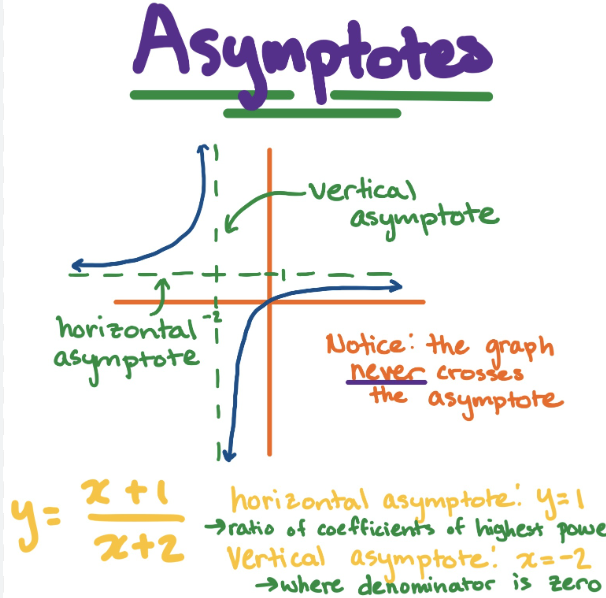 Asymptotes
vertical
asymptote
1
-2
horizontal
asymptote
Notice: the graph
never crosses
the asymptote
y = x+1
x+2
horizontal asymptote: y=1
→ratio of coefficients of highest powe
Vertical asymptote: x=-2
→where denominator is zero